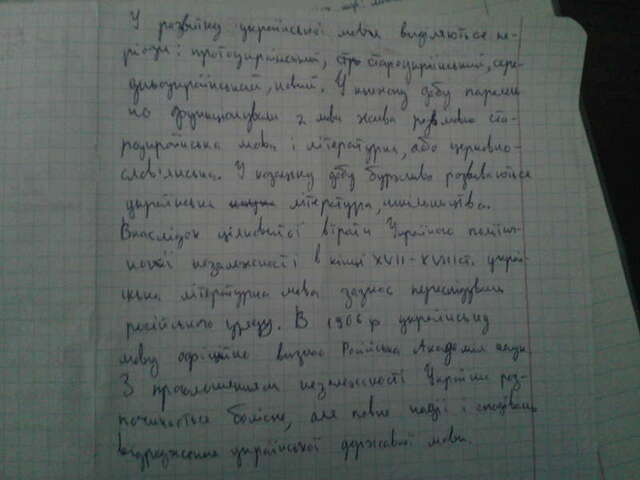 У розвитку української мови виділяються пе-
ріоди: протоукраїнський, староукраїнський, сере-
дньоукраїнський, новий. У княжу добу паралель
но функціонували 2 мови жива розмовна ста-
роукраїнська мова і літературна, або церковно-
слов'янська. У козацьку добу бурхливо розвиваються
українська література, шкільництво.
Внаслідок цілковитої втрати Україною політич-
ної незалежності в кінці XVII-XVIII ст. украї-
нська літературна мова зазнає переслідувань
російського уряду. В 1906 р українську
мову офіційно визнає Російська Академія наук
З проголошенням незалежності України роз-
починається болісне, але повне надії і сподівань
відродження української державної мови.